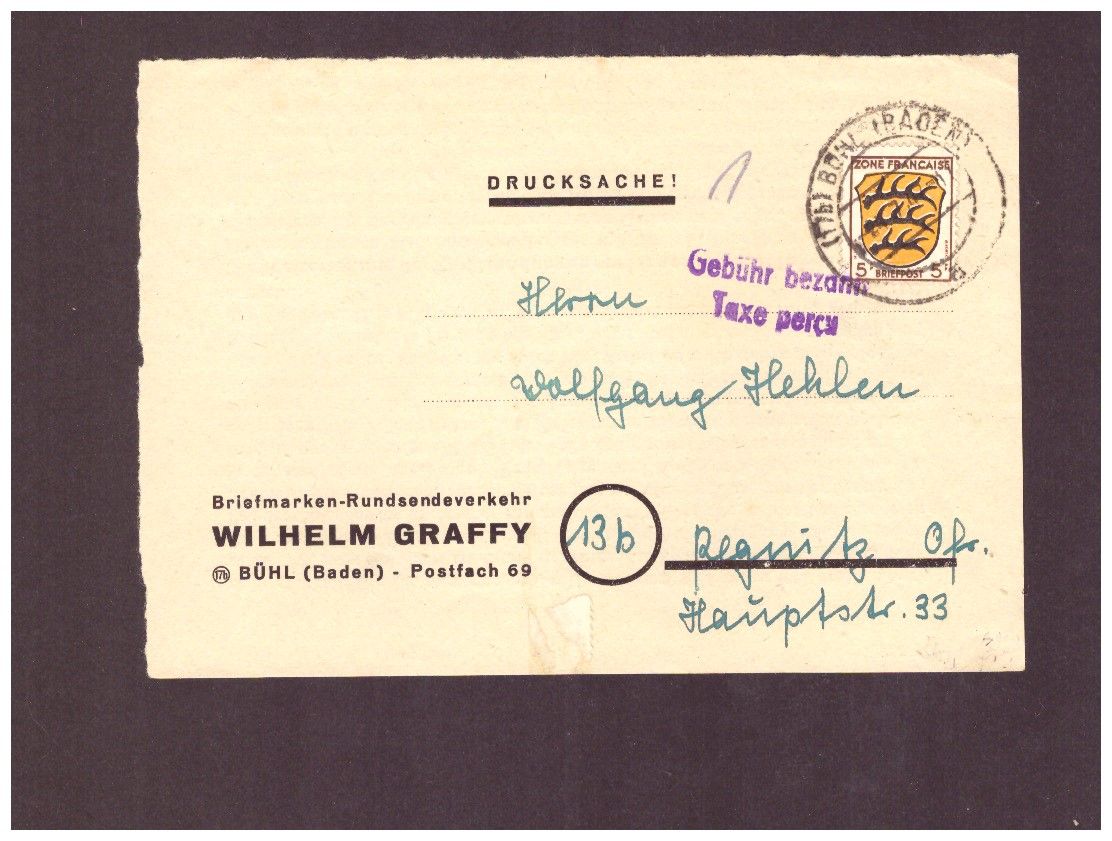 DRUCKSACHE!
1
(17b) BÜHL (BADEN)
ZONE FRANÇAISE
5 BRIEFPOST 5
Gebühr bezahlt
Taxe perçu
Herrn
Wolfgang Hehlen
Briefmarken-Rundsendeverkehr
WILHELM GRAFFY
17b BÜHL (Baden) - Postfach 69
13b
Pegnitz Ofr.
Hauptstr. 33